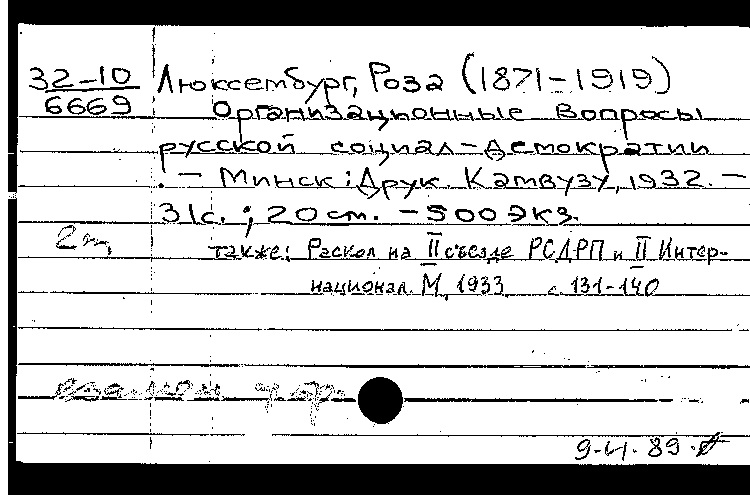 32-10 Люксембург, Роза (1871-1919)
6669 Организационные вопросы
русской социал-демократии
. - Минск: Друк. Камвузу, 1932. -
31с.; 20 см. - 500 экз.
также: Раскол на II съезде РСДРП и II Интер-
национал. М, 1933 с. 131-140
9-4.89.